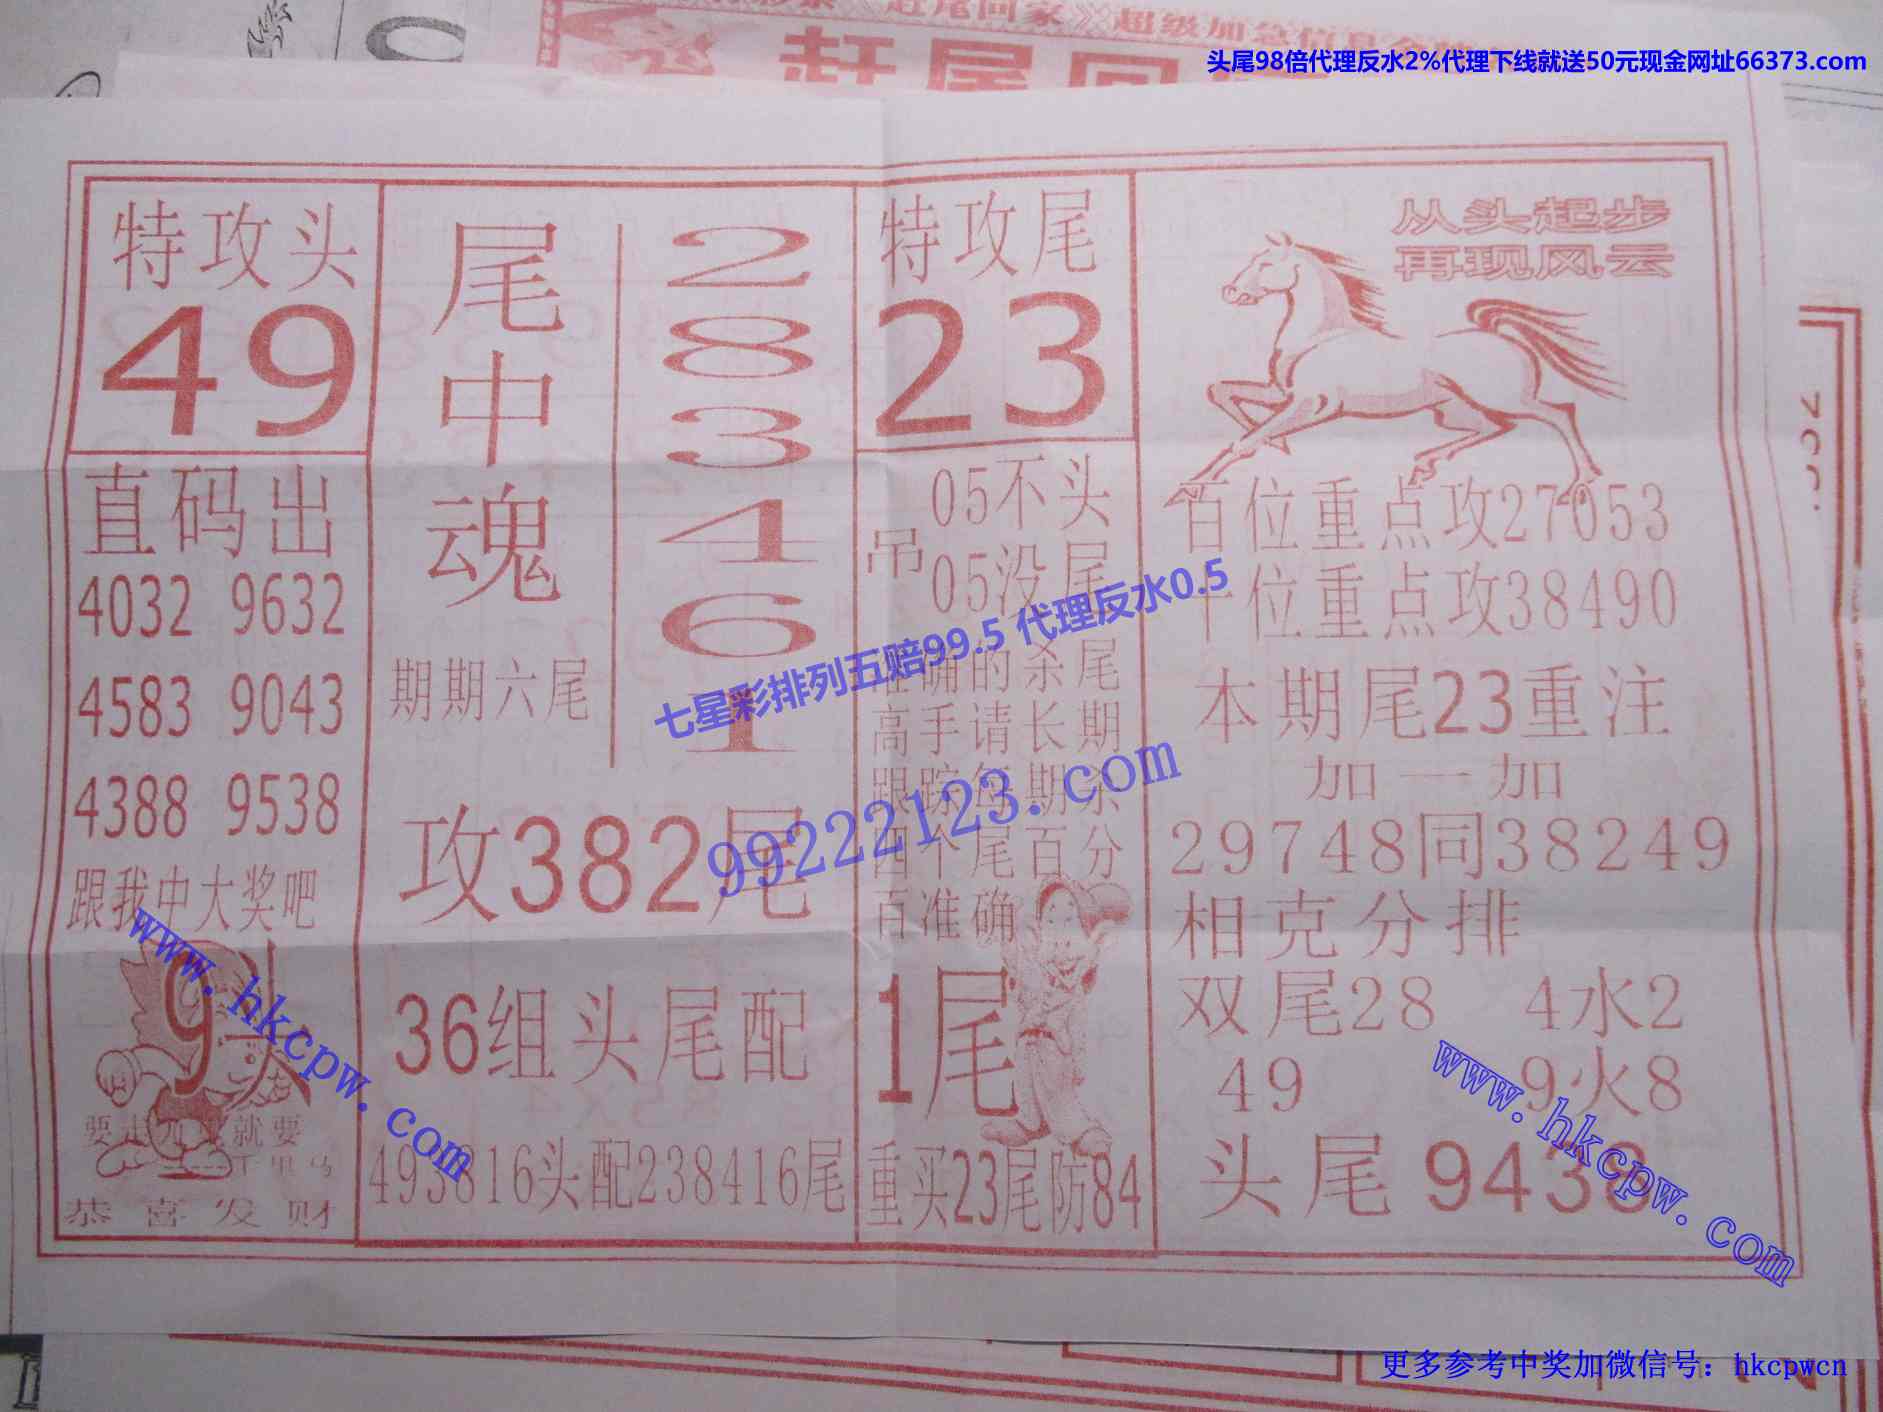 赶尾回家
超级加急信息
头尾98倍代理反水2%代理下线就送50元现金网址66373.com
特攻头
49
直码出
4032 9632
4583 9043
4388 9538
跟我中大奖吧
9头
恭喜发财
尾中魂
283461
期期六尾
攻382尾
36组头尾配
493816头配238416尾
特攻尾
23
吊
05不头
05没尾
准确的杀尾
高手请长期
跟踪每期杀
四个尾百分
百准确
1尾
重买23尾防84
从头起步
再现风云
百位重点攻27053
十位重点攻38490
本期尾23重注
加一加
29748同38249
相克分排
双尾28 4水2
49 9火8
头尾9438
七星彩排列五赔99.5 代理反水0.5
99222123.com
www.hkcpw.com
www.hkcpw.com
更多参考中奖加微信号：hkcpwcn